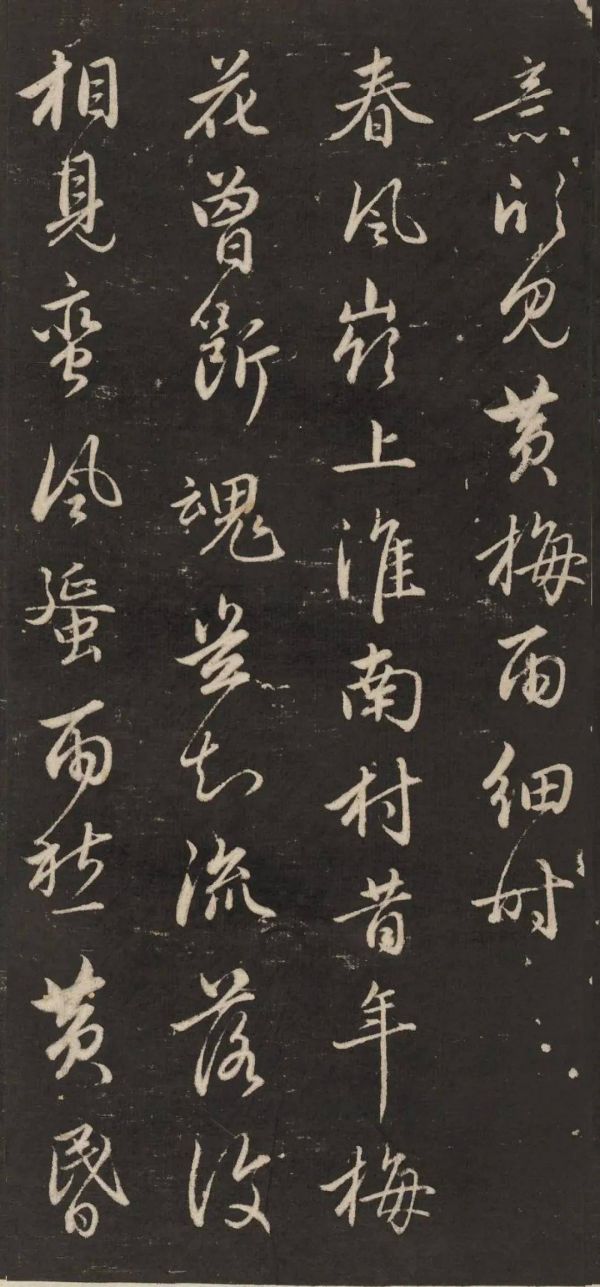 意欲見黃梅雨細時
春風嶺上淮南村昔年梅
花曾斷魂豈知流落復
相見蠻風蜑雨愁黃昏